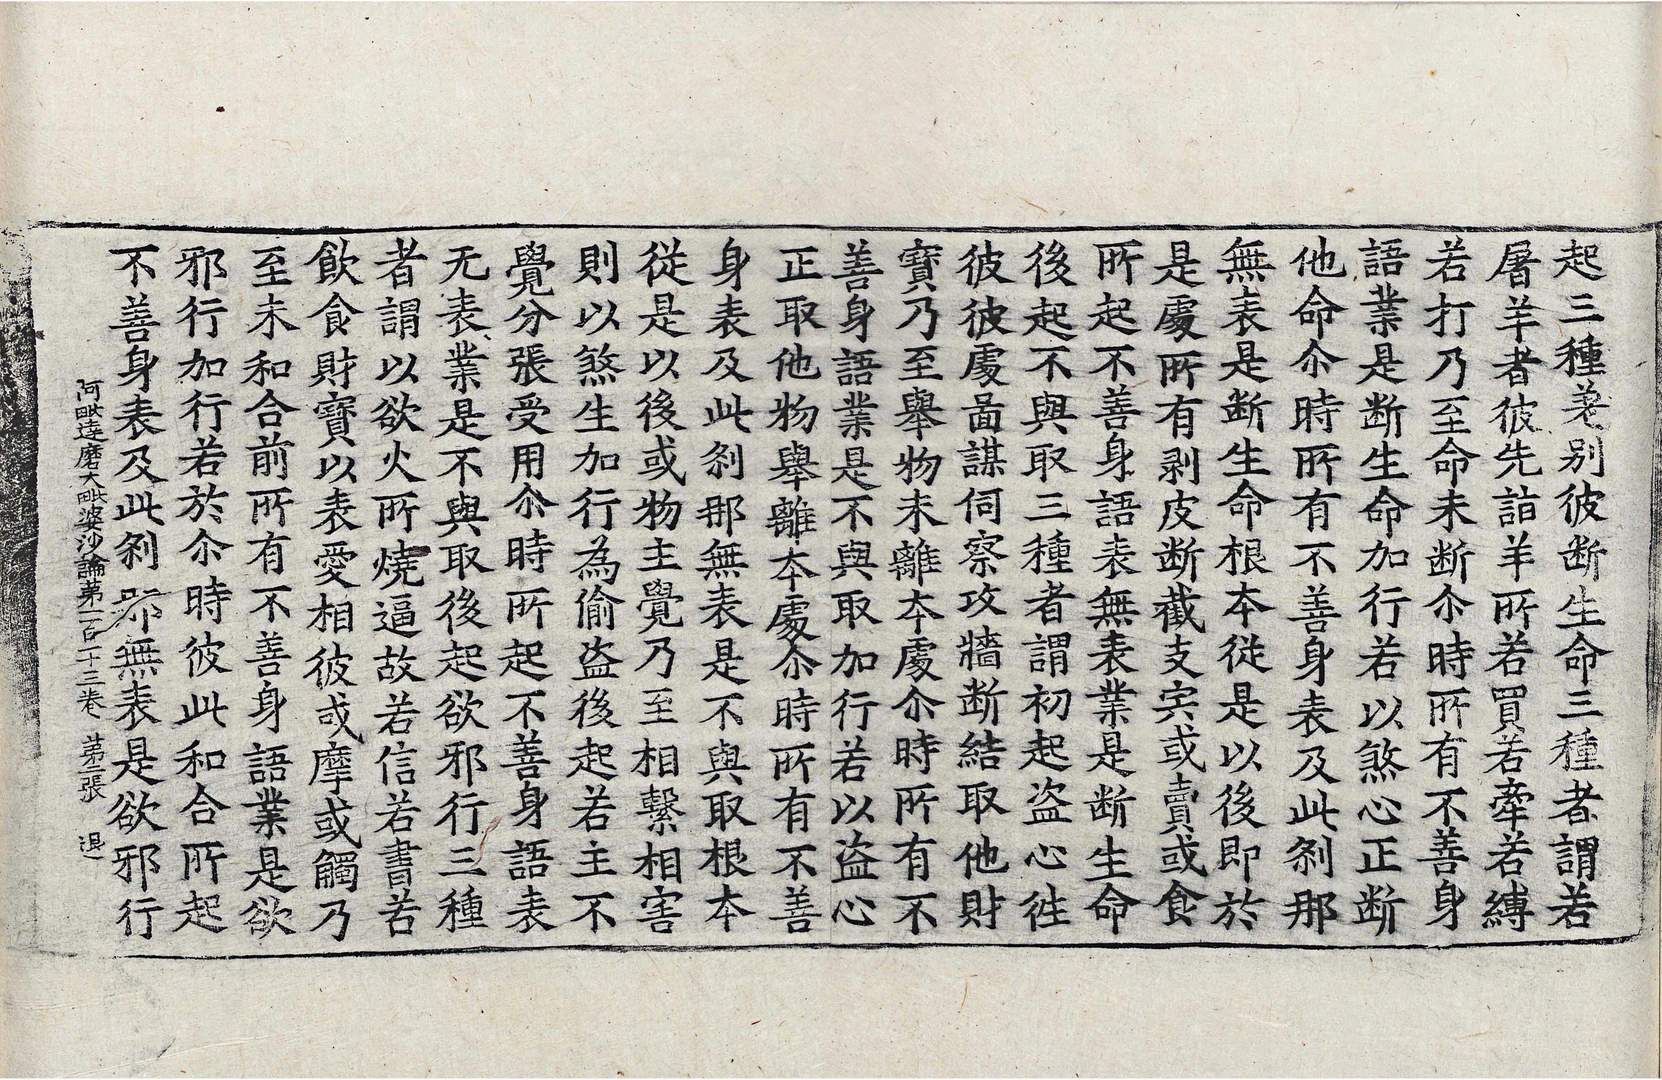 起三種差別彼断生命三種者謂若
屠羊者彼先詣羊所若買若牽若縛
若打乃至命未断尒時所有不善身
語業是断生命加行若以煞心正断
他命尒時所有不善身表及此刹那
無表是断生命根本從是以後即於
是處所有剥皮断截支宍或賣或食
所起不善身語表無表業是断生命
後起不與取三種者謂初起盗心徃
彼彼處啚謀伺察攻牆断結取他財
寶乃至舉物未離本處尒時所有不
善身語業是不與取加行若以盗心
正取他物舉離本處尒時所有不善
身表及此刹那無表是不與取根本
從是以後或物主覺乃至相繫相害
則以煞生加行為偷盗後起若主不
覺分張受用尒時所起不善身語表
无表業是不與取後起欲邪行三種
者謂以欲火所燒逼故若信若書若
飲食財寶以表愛相彼或摩或觸乃
至未和合前所有不善身語業是欲
邪行加行若於尒時彼此和合所起
不善身表及此刹那無表是欲邪行
阿毗達磨大毗婆沙論第一百一十三卷 第二張 退